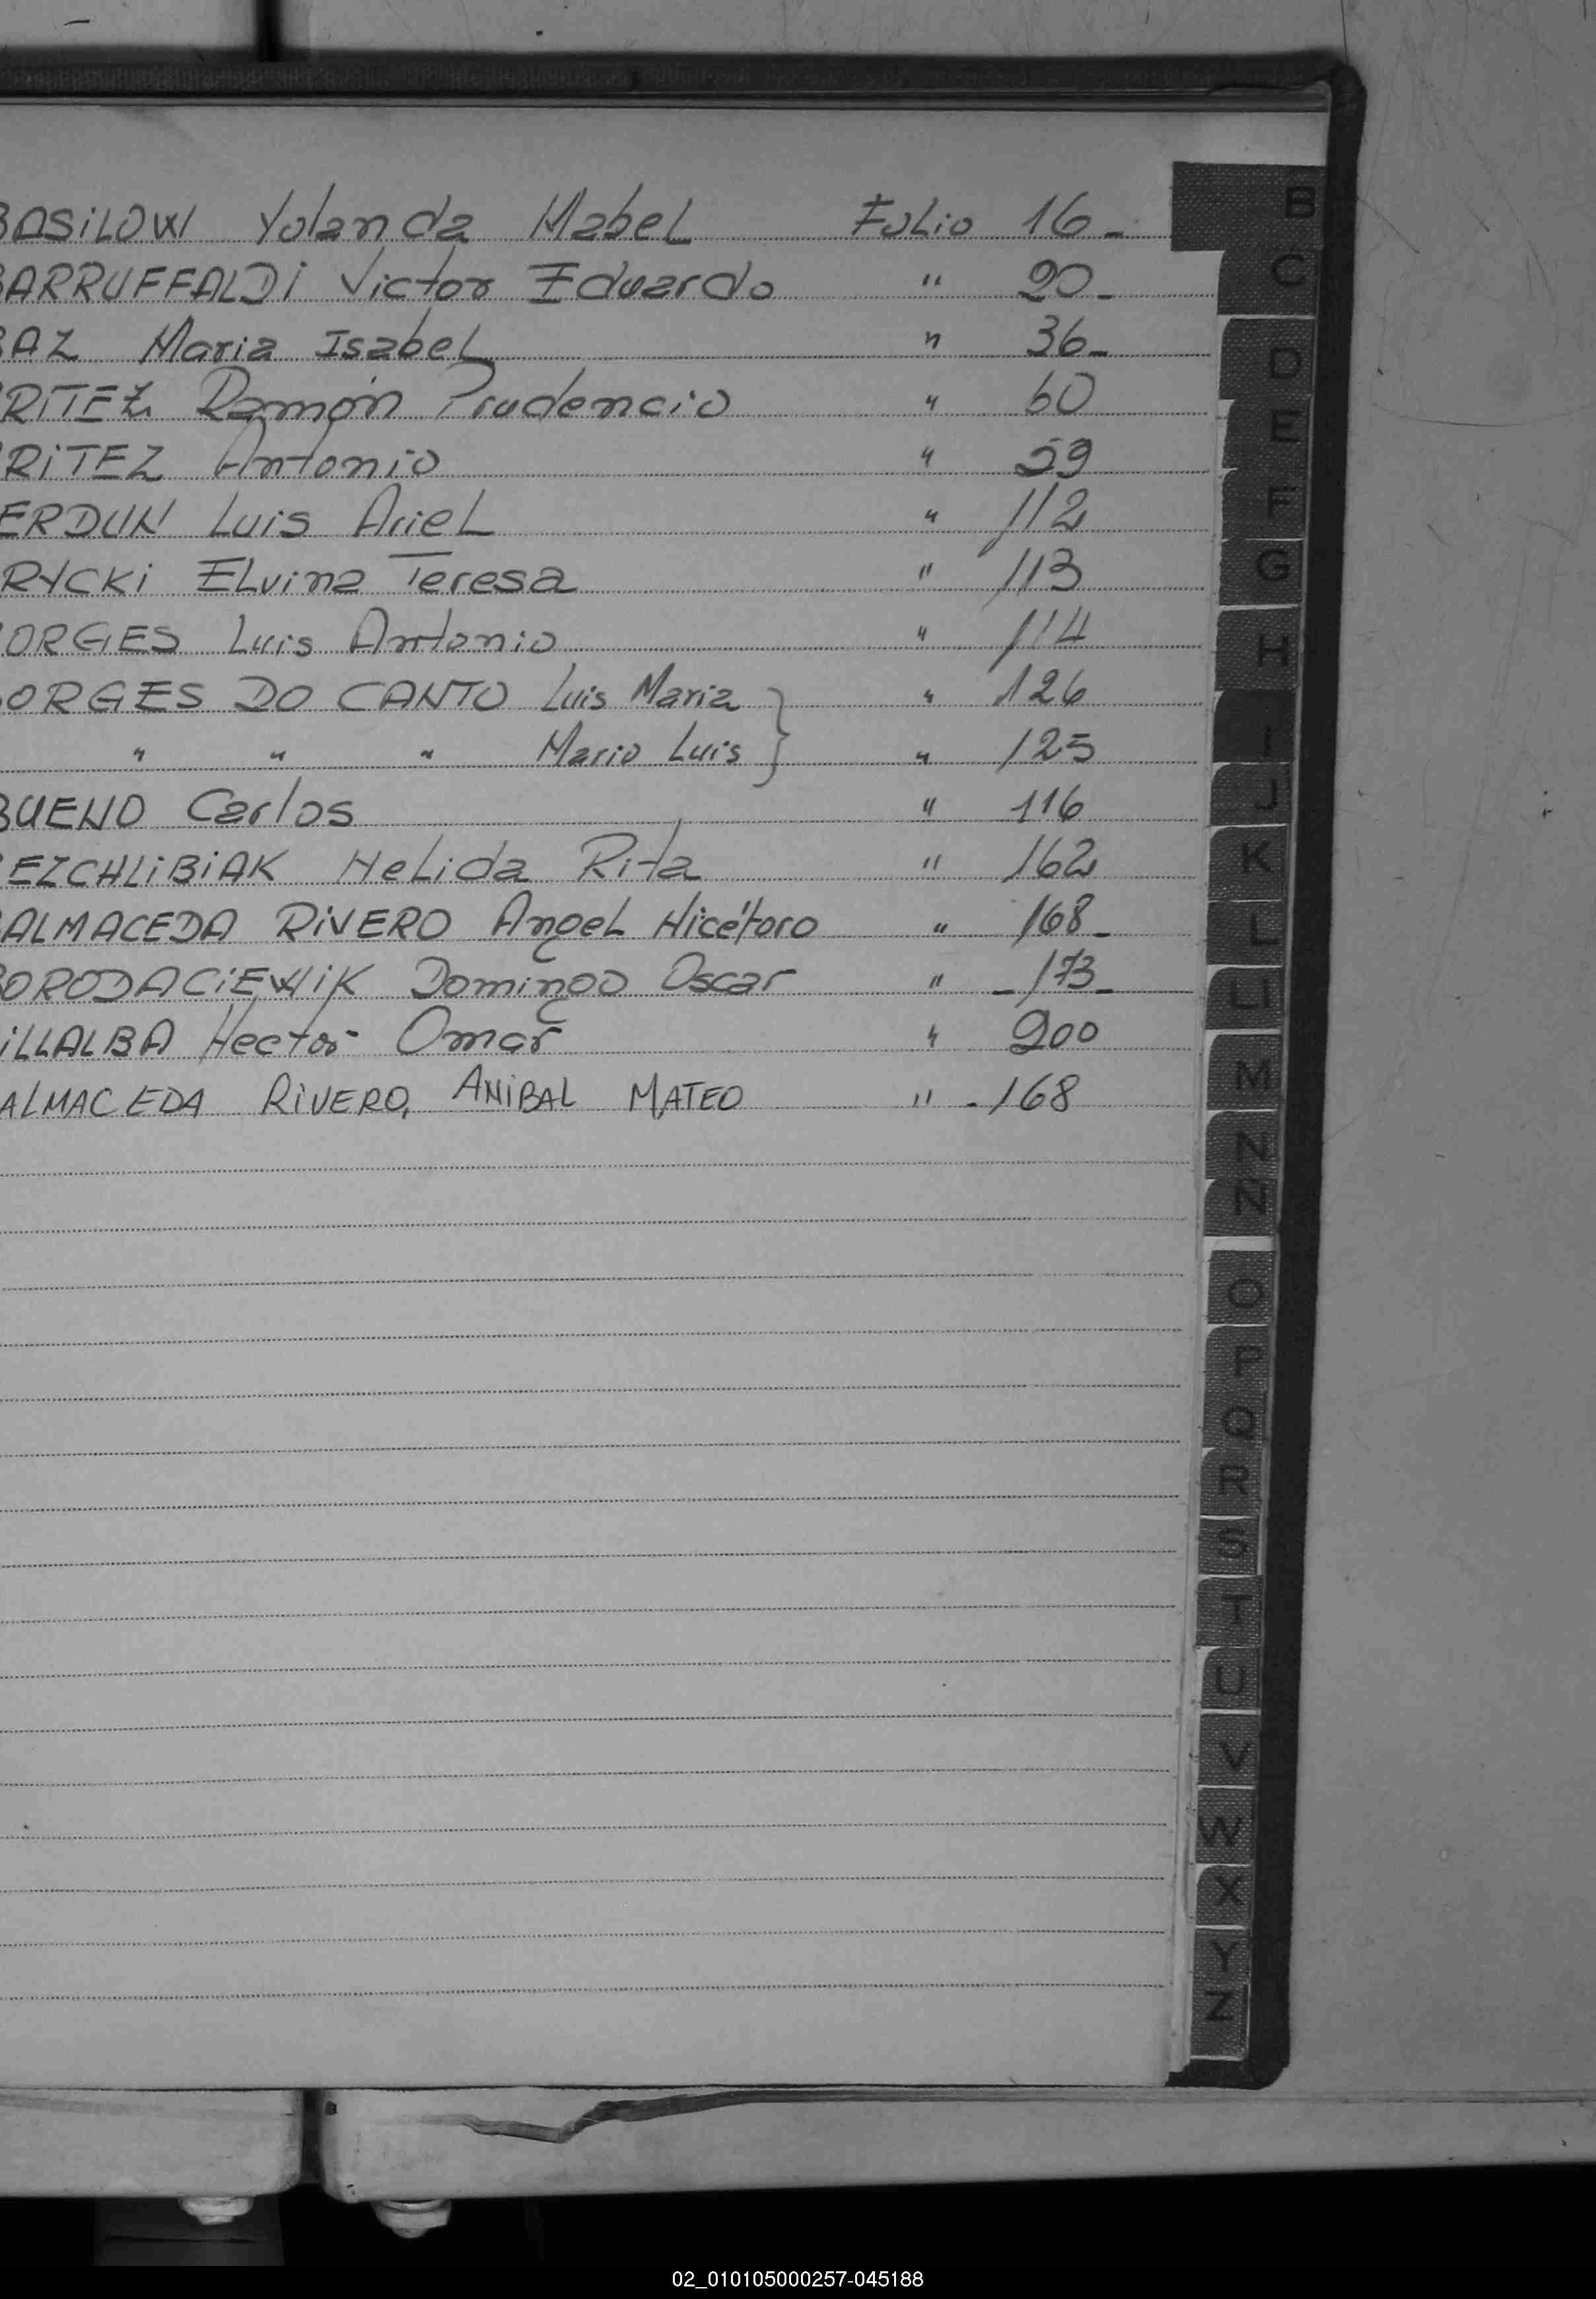 BASILOW Yolanda Mabel Folio 16-
BARRUFFALDI Victor Eduardo " 20-
BAZ Maria Isabel " 36-
RITEZ Ramón Prudencio " 60
RITEZ Antonio " 59
ERDUN Luis Ariel " 112
RYCKI Elvina Teresa " 113
ORGES Luis Antonio " 114
ORGES DO CANTO Luis Maria } " 126
" " " Mario Luis } " 125
BUENO Carlos " 116
EZCHLIBIAK Nelida Rita " 162
ALMACEDA RIVERO Angel Nicétoro " 168-
ORODACIEWIK Domingo Oscar " -173-
ILLALBA Hector Omar " 200
ALMACEDA RIVERO, ANIBAL MATEO " -168
B
C
D
E
F
G
H
I
J
K
L
Ll
M
N
Ñ
O
P
Q
R
S
T
U
V
W
X
Y
Z
02_010105000257-045188